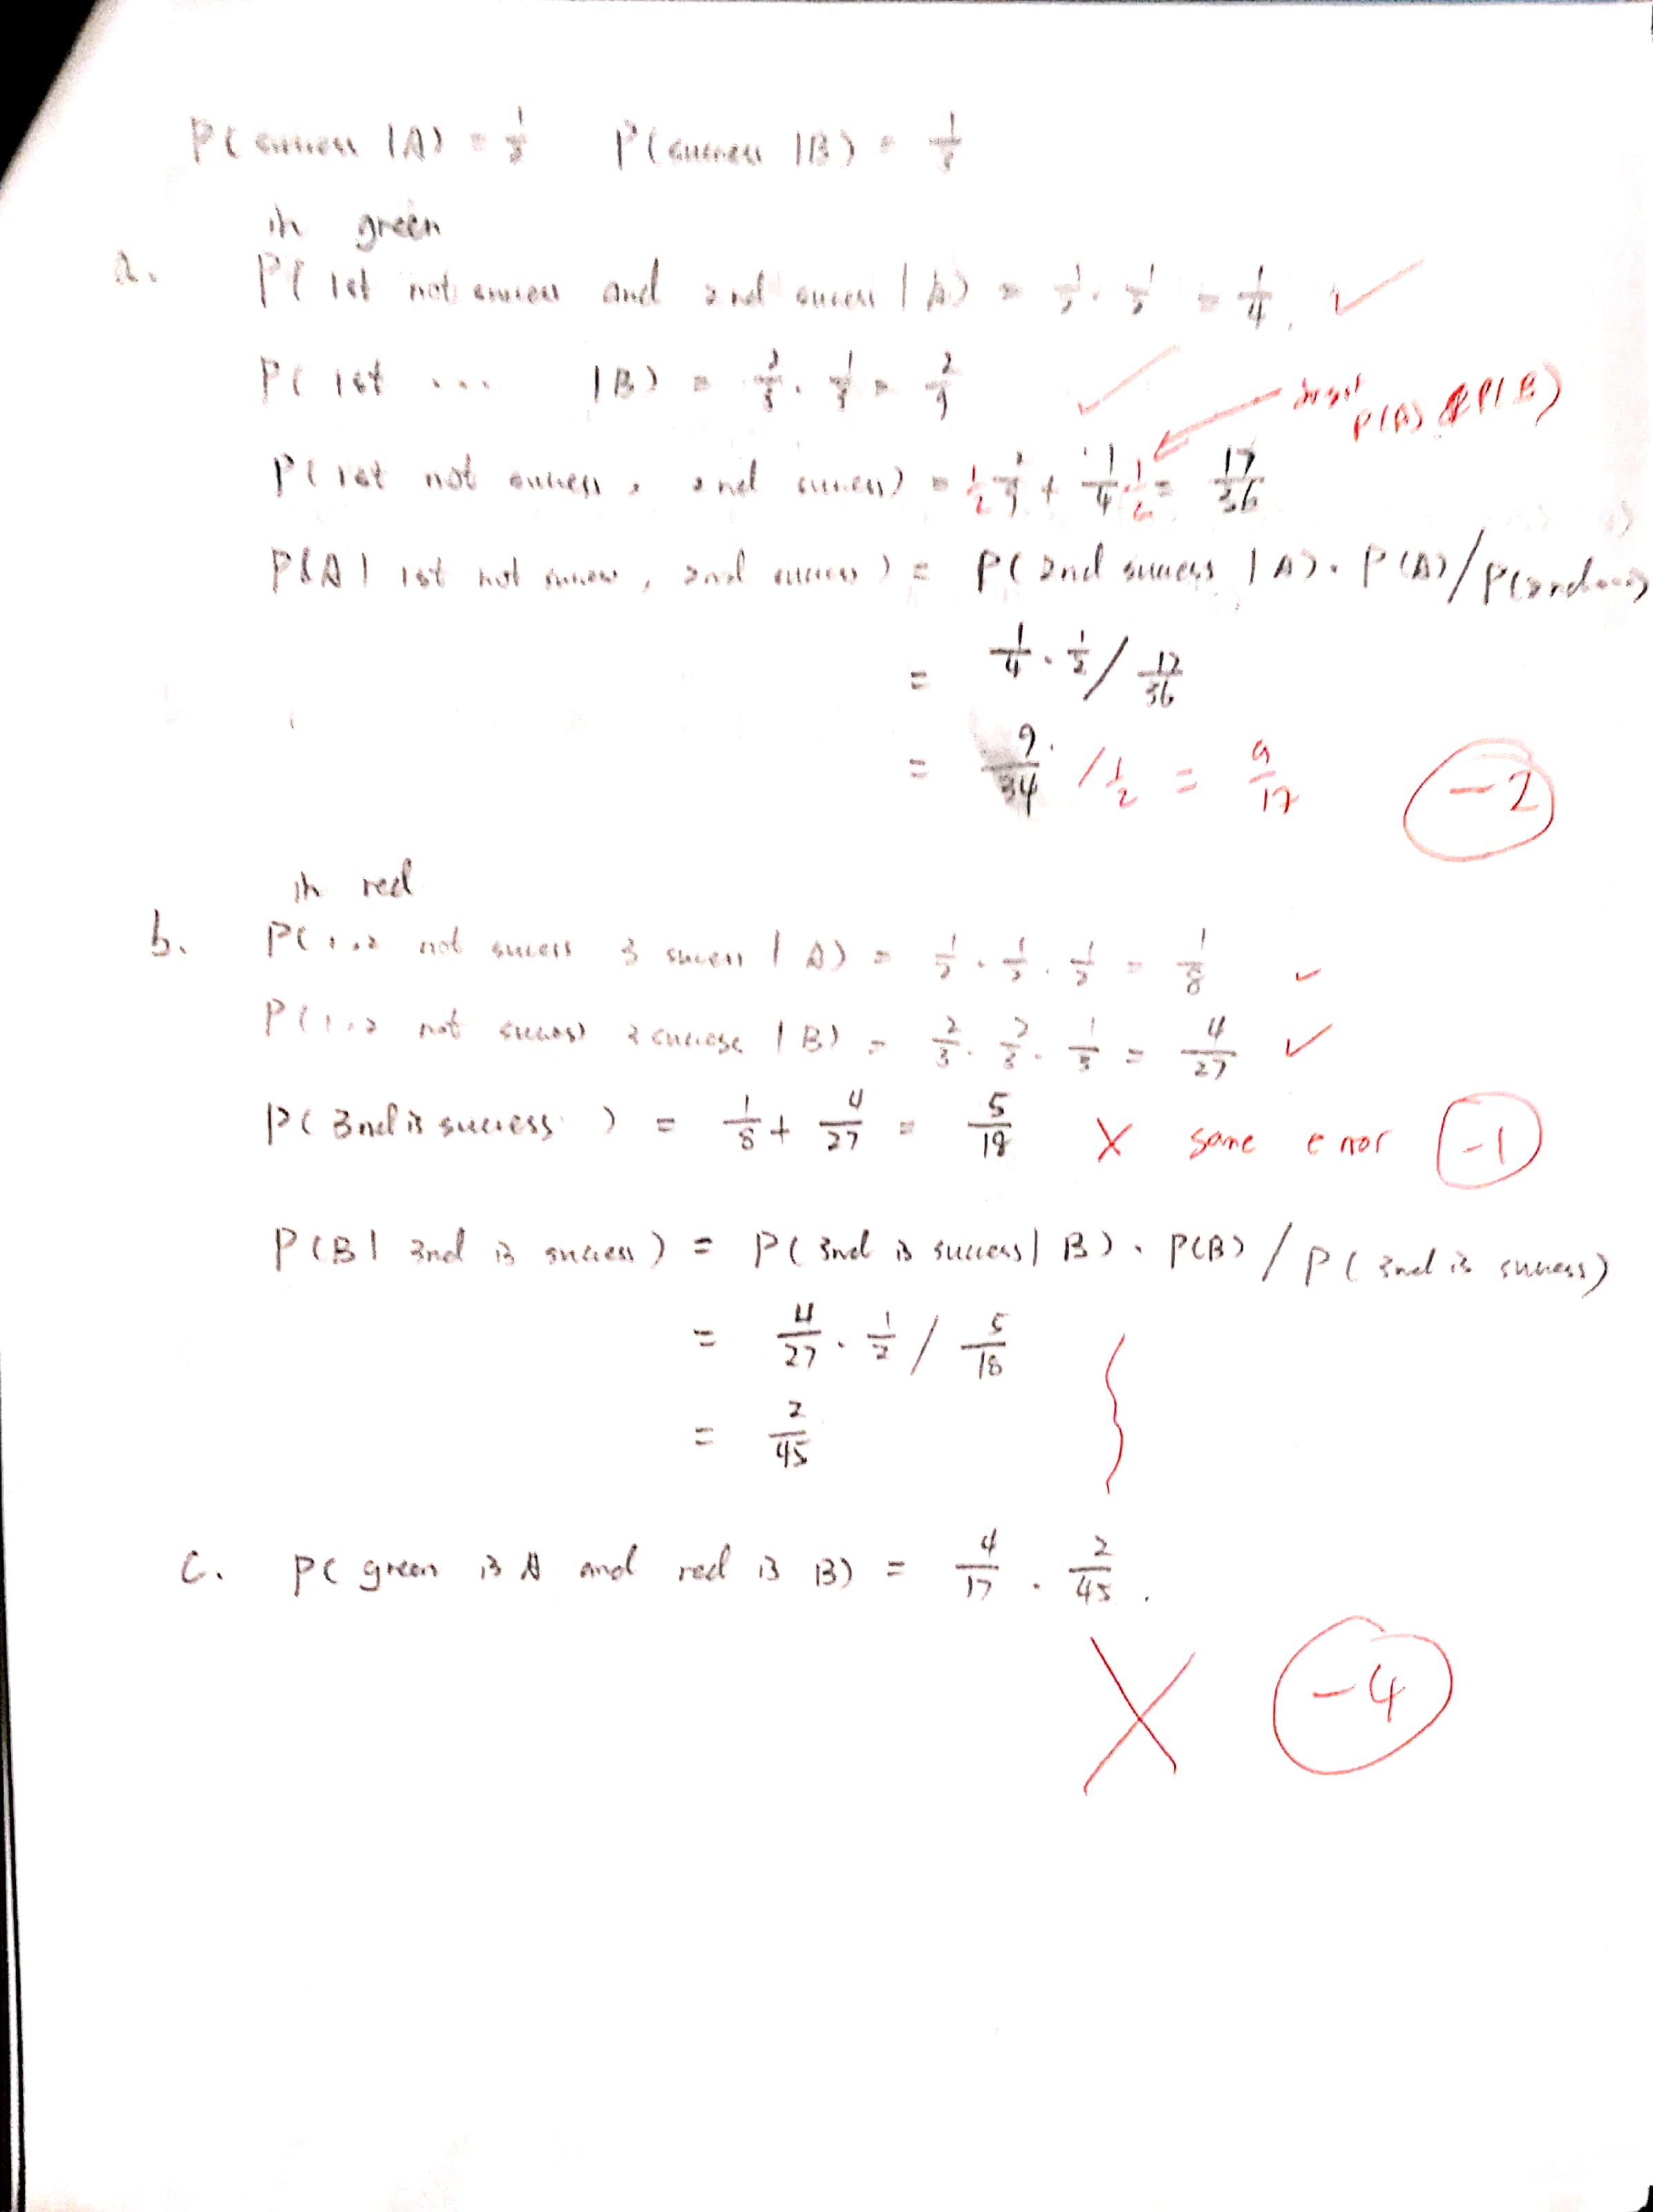 P(success |A) = 1/2 P(success |B) = 1/3
in green
a. P( 1st not success and 2nd success | A) = 1/2 · 1/2 = 1/4. ✓
P( 1st ... |B) = 2/3 · 1/3 = 2/9 ✓
P(A) & P(B)
P( 1st not success, 2nd success) = 1/2 2/9 + 1/4 · 1/2 = 17/36
P(A | 1st not success, 2nd success) = P( 2nd success | A) · P(A) / P(2nd...)
= 1/4 · 1/2 / 17/36
= 9/34 / 1/2 = 9/17 -2
in red
b. P(1,2 not success 3 success | A) = 1/2 · 1/2 · 1/2 = 1/8 ✓
P(1,2 not success 3 success | B) = 2/3 · 2/3 · 1/3 = 4/27 ✓
P( 3nd is success ) = 1/8 + 4/27 = 5/18 X same error -1
P(B | 3nd is success) = P( 3nd is success | B) · P(B) / P( 3nd is success)
= 4/27 · 1/2 / 5/18
= 2/45
c. P( green is A and red is B) = 4/17 · 2/45 .
X -4